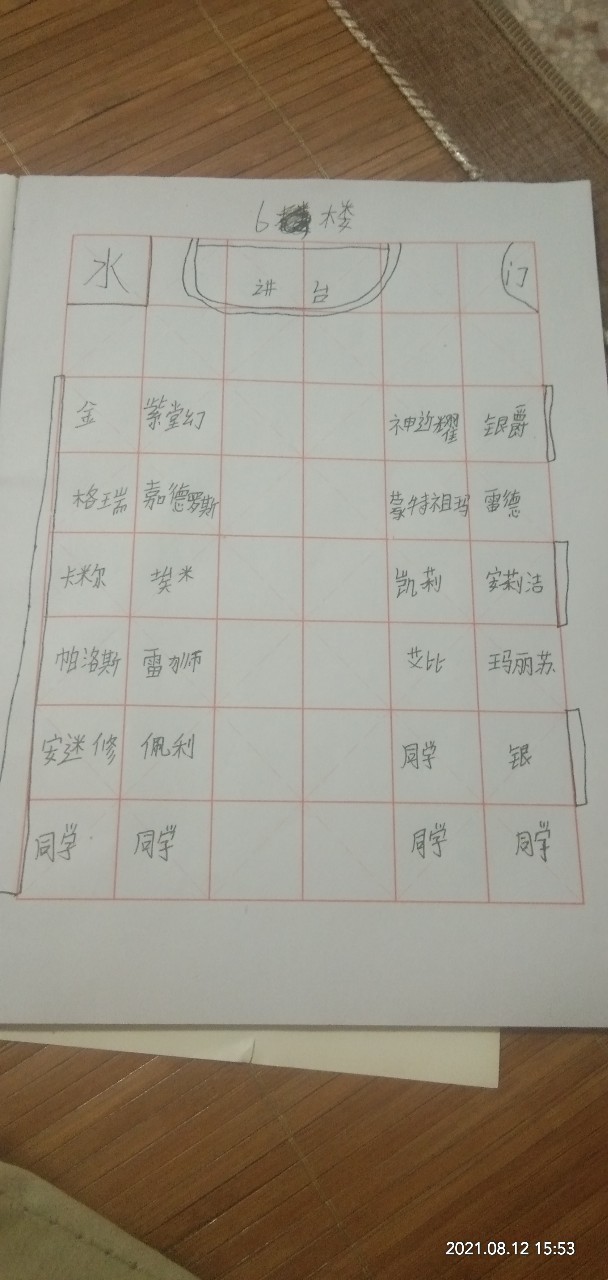 6 楼
水 讲台 门
金 紫堂幻 神近耀 银爵
格瑞 嘉德罗斯 蒙特祖玛 雷德
卡米尔 埃米 凯莉 安莉洁
帕洛斯 雷狮 艾比 玛丽苏
安迷修 佩利 同学 银
同学 同学 同学 同学
2021.08.12 15:53